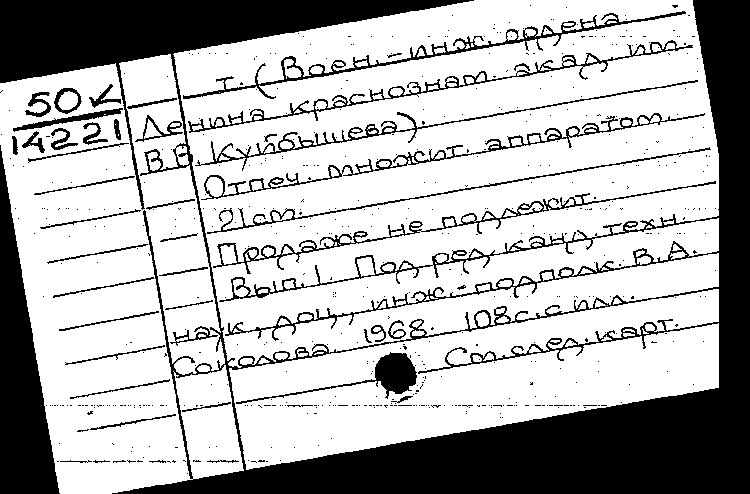 50✓
14221
т. (Воен.-инж. ордена
Ленина краснознам. акад. им.
В.В. Куйбышева).
Отпеч. множит. аппаратом.
21 см.
Продаже не подлежит.
Вып. 1. Под ред. канд. техн.
наук, доц., инж.-подполк. В.А.
Соколова. 1968. 108 с. с илл.
См. след. карт.